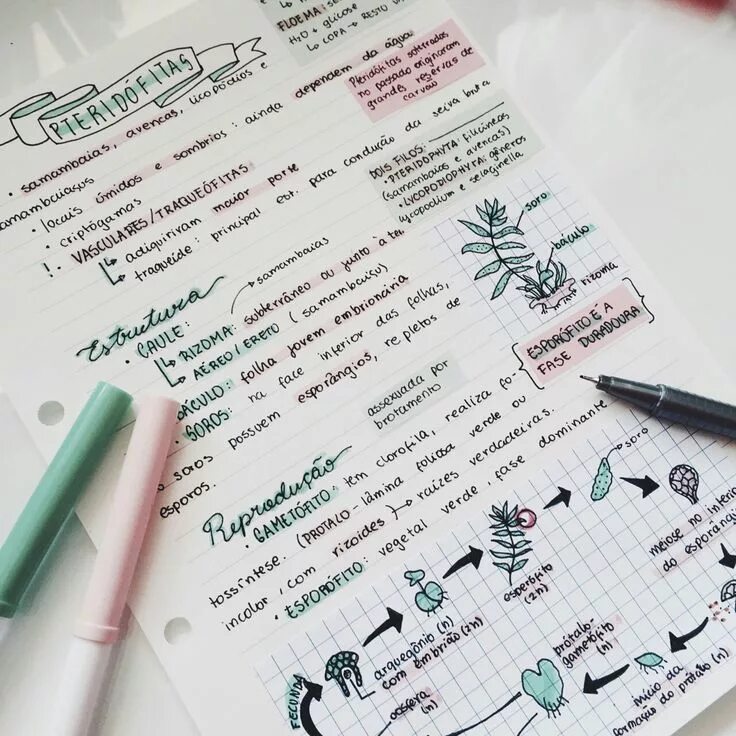 FLOEMA: sei
H₂O + glicose
↳ COPA → RESTO
PTERIDÓFITAS
• samambaias, avencas, licopódios e
samambaiaçus
• locais úmidos e sombrios: ainda dependem da água
• criptógamas
!. VASCULARES/TRAQUEÓFITAS
↳ adiquiriram maior porte
↳ traqueíde: principal est. para condução da seiva bruta
Pteridófitas soterradas
no passado originaram
grandes reservas de
carvão
DOIS FILOS:
• PTERIDOPHYTA: filicíneas
(samambaias e avencas)
• LYCOPODIOPHYTA: gêneros
lycopodium e selaginella
soro
báculo
rizoma
Estrutura
• CAULE:
↳ RIZOMA: subterrâneo ou junto à ter.
samambaias
↳ AÉREO/ERETO (samambaiaçu)
BÁCULO: folha jovem embrionária
• SOROS: na face inferior das folhas,
o soros possuem esporângios, repletos de
esporos.
ESPORÓFITO É A
FASE DURADOURA
assexuada por
brotamento
Reprodução
• GAMETÓFITO: tem clorofila, realiza fo-
tossíntese. (PROTALO - lâmina foliosa verde ou
incolor, com rizoides) → raízes verdadeiras.
• ESPORÓFITO: vegetal verde, fase dominante
soro
meiose no interior
do esporângio
esporófito
(2n)
arquegônio (n)
com embrião (2n)
FECUNDA
oosfera
(n)
prótalo-
gametófito
(n)
início da
formação do prótalo (n)